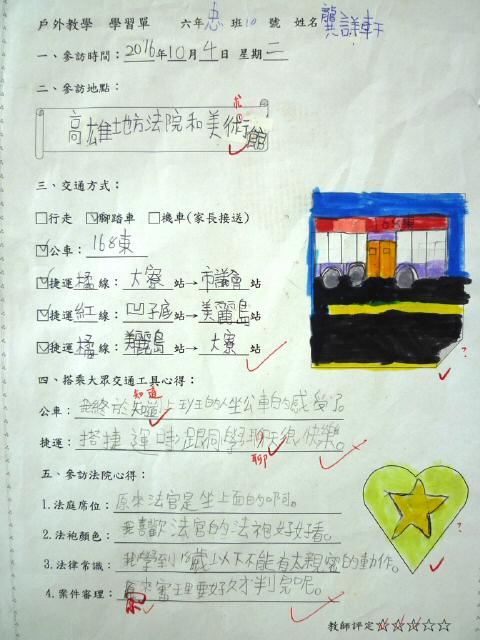 戶外教學 學習單 六年忠班10號 姓名龔詳軒
一、參訪時間：2016年10月4日 星期二
二、參訪地點：
高雄地方法院和美術館
三、交通方式：
□行走 ☑腳踏車 □機車(家長接送)
☑公車：168東
☑捷運橘線：大寮站→市議會站
☑捷運紅線：凹子底站→美麗島站
☑捷運橘線：美麗島站→大寮站
168東
四、搭乘大眾交通工具心得：
知道
公車：我終於知道上班的人坐公車的感受了。
捷運：搭捷運時跟同學聊天很快樂。
聊
五、參訪法院心得：
1.法庭席位：原來法官是坐上面的啊。
2.法袍顏色：我喜歡法官的法袍好好看。
3.法律常識：我學到18歲以下不能有太親密的動作。
4.案件審理：原來審理要好久才判完呢。
教師評定☆☆☆☆☆